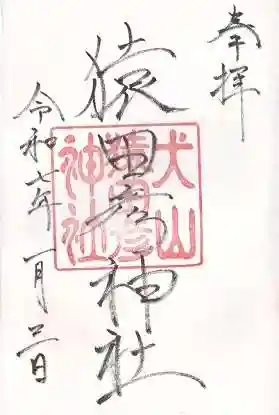 奉拝
猿田彦神社
令和七年一月二日
犬山
猿田彦
神社